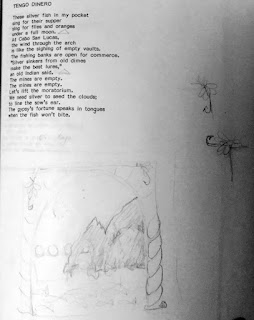 TENGO DINERO
These silver fish in my pocket
sing for their supper
sing for flies and oranges
under a full moon.
at Cabo San Lucas,
the wind through the arch
is like the sighing of empty vaults.
The fishing banks are open for commerce.
"Silver sinkers from old dimes
make the best lures,"
an old indian said.
The mines are empty.
The mines are empty.
Let's lift the moratorium,
We need silver to seed the clouds;
to line the sow's ear.
The gypsy's fortune speaks in tongues
when the fish won't bite.